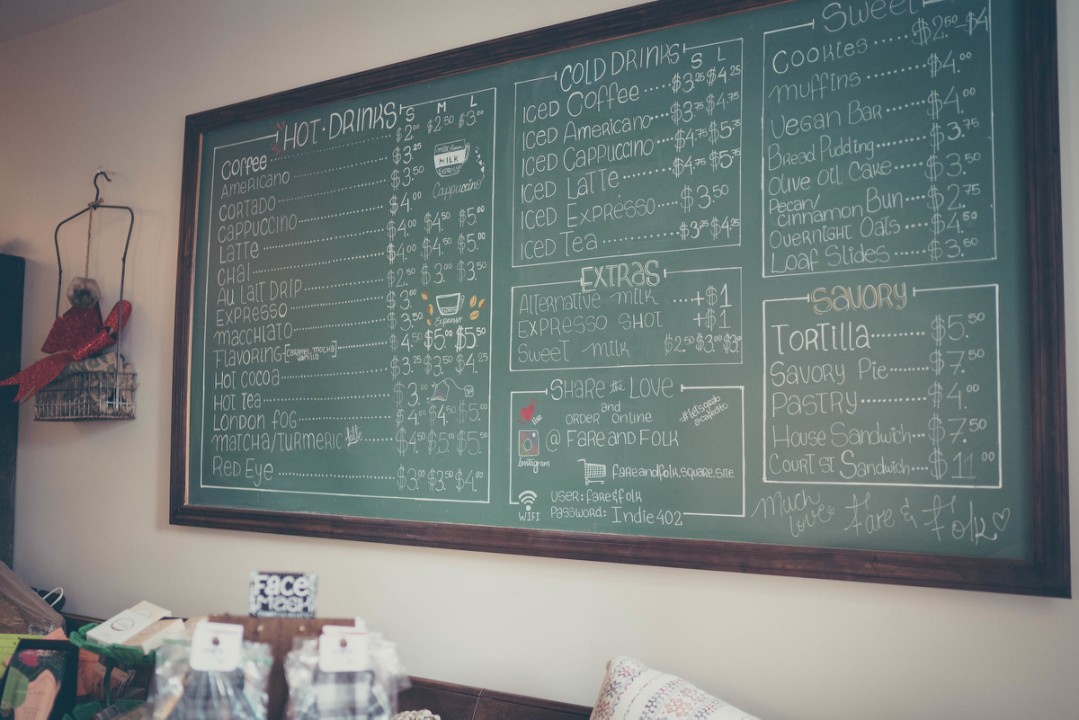 HOT DRINKS S M L
Coffee $2.00 $2.50 $3.00
Americano $3.25
Cortado $3.50
Cappuccino $4.00
Latte $4.00 $4.50 $5.00
Chai $4.00 $4.50 $5.00
Au Lait Drip $2.50 $3.00 $3.50
Expresso $3.00
Macchiato $3.50
Flavoring [caramel, mocha, vanilla] $4.50 $5.00 $5.50
Hot Cocoa $3.50 $4.25
Hot Tea $3.
London Fog $4. $4.50 $5.
Matcha/Turmeric latte $4.50 $5.00 $5.50
Red Eye $3.00 $3.50 $4.00
MILK
EXPRESSO
Cappuccino
Expresso
COLD DRINKS S L
Iced Coffee $3.25 $4.25
Iced Americano $3.75 $4.75
Iced Cappuccino $4.75 $5.75
Iced Latte $4.75 $5.75
Iced Expresso $3.50
Iced Tea $3.25 $4.25
EXTRAS
Alternative milk +$1
Expresso shot +$1
Sweet milk $2.50 $3.00
SHARE the LOVE
and
order online
like
#letsgodo
@cafeato
Instagram
@ Fare and Folk
fareandfolk.square.site
WIFI
User: fare&folk
Password: Indie402
Sweet
Cookies $2.50-$4
Muffins $4.00
Vegan Bar $4.00
Bread Pudding $3.75
Olive Oil Cake $3.50
Pecan/
Cinnamon Bun $2.75
Overnight Oats $4.50
Loaf Slides $3.50
SAVORY
Tortilla $5.50
Savory Pie $7.50
Pastry $4.00
House Sandwich $7.50
Court St Sandwich $11.00
Much
love
Fare & Folk
FACE
MASK